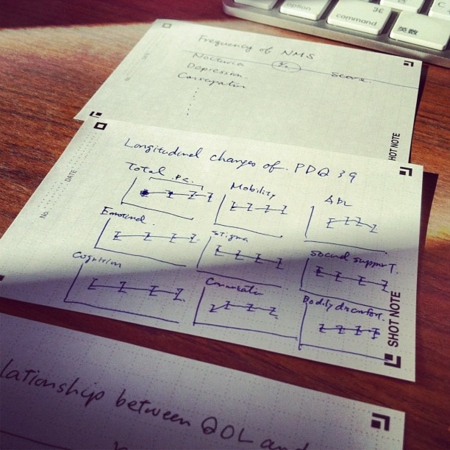 option
command
⌘
英数
Frequency of NMS
Nocturia
Depression
Score
HOT NOTE
No.
DATE
Longitudinal changes of PDQ 39
Total
Mobility
ADL
Emotional
Stigma
Social support
Cognision
Bodily discomfort
SHOT NOTE
lationship between QOL and